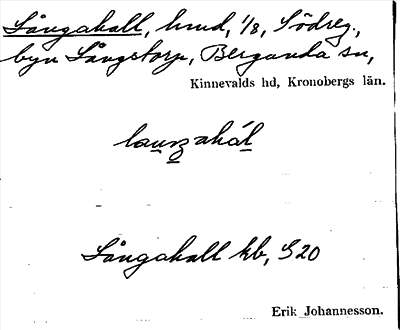 Långakall, hmd, 1/8, Södreg.,
byn Långstorp, Bergunda sn,
Kinnevalds hd, Kronobergs län.
Långakall kb, S20
Erik Johannesson.